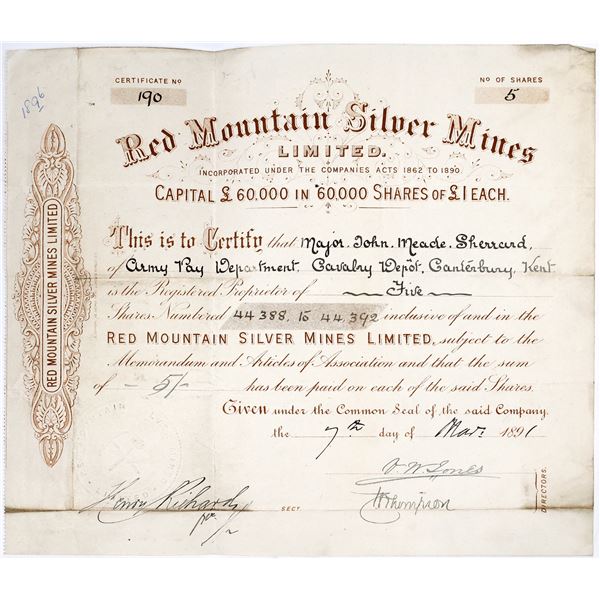 CERTIFICATE Nº
190
Nº OF SHARES
5
1896
Red Mountain Silver Mines
LIMITED.
INCORPORATED UNDER THE COMPANIES ACTS 1862 TO 1890.
CAPITAL £60,000 IN 60,000 SHARES OF £1 EACH.
This is to Certify that Major John Meade Sherrard,
of Army Pay Department, Cavalry Depôt, Canterbury, Kent
is the Registered Proprietor of Five
Shares Numbered 44388 to 44,392 inclusive of and in the
RED MOUNTAIN SILVER MINES LIMITED, subject to the
Memorandum and Articles of Association and that the sum
of 5/- has been paid on each of the said Shares.
Given under the Common Seal of the said Company,
the 7th day of Mar: 1896
RED MOUNTAIN SILVER MINES LIMITED
Jones
Thompson
DIRECTORS.
Henry Richards
SECT.